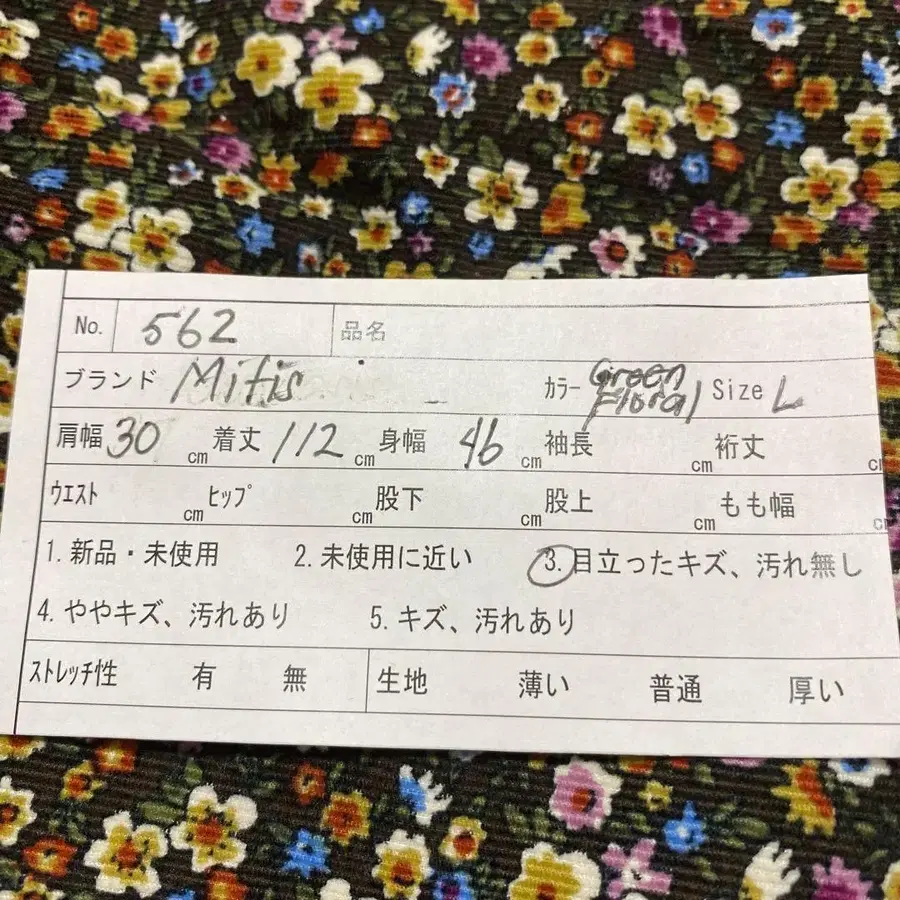 No. 562 品名
ブランド Mitis カラー Green Floral Size L
肩幅 30 cm 着丈 112 cm 身幅 46 cm 袖長 cm 裄丈 cm
ウエスト cm ヒップ cm 股下 cm 股上 cm もも幅 cm
1. 新品・未使用 2. 未使用に近い 3. 目立ったキズ、汚れ無し
4. ややキズ、汚れあり 5. キズ、汚れあり
ストレッチ性 有 無 生地 薄い 普通 厚い